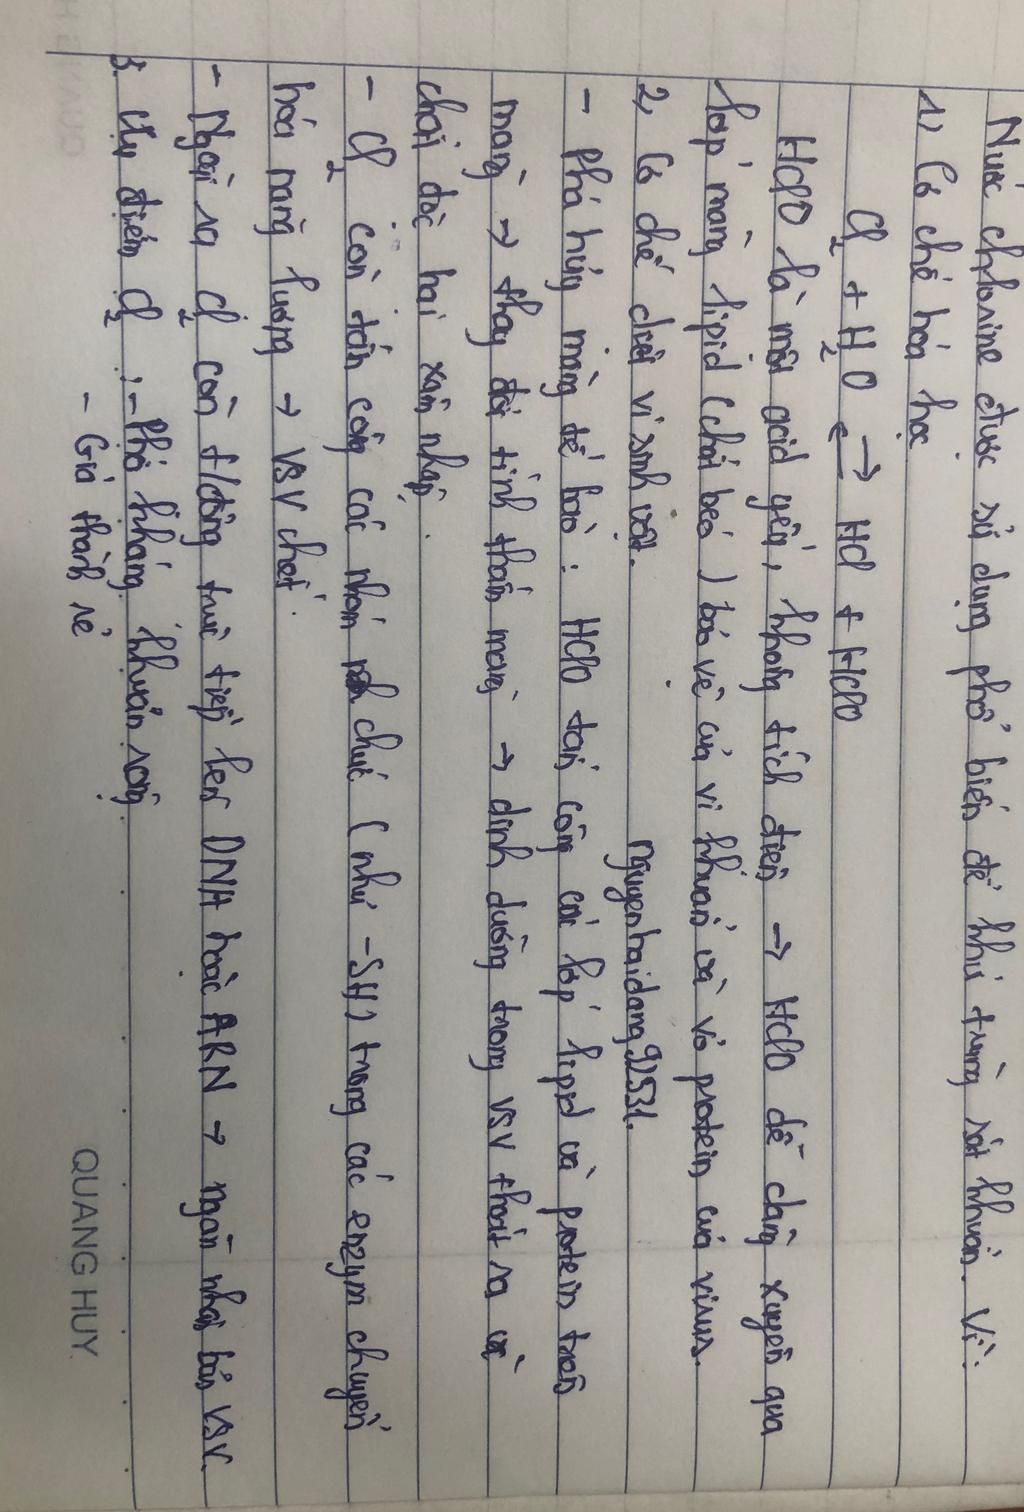 Nước chlorine được sử dụng phổ biến để khử trùng sát khuẩn. Vì:
1) Cơ chế hóa học
Cl2 + H2O ⇌ HCl + HClO
HClO là một acid yếu, không tích điện → HClO dễ dàng xuyên qua
lớp màng lipid (chất béo) bảo vệ của vi khuẩn và vỏ protein của virus.
2, Cơ chế diệt vi sinh vật.
nguyenhaidang92531.
- Phá hủy màng tế bào: HClO tấn công các lớp lipid và protein trên
màng → thay đổi tính thấm màng → dinh dưỡng trong VSV thoát ra và
chất độc hại xâm nhập.
- Cl2 còn tấn công các nhóm chức (như -SH) trong các enzym chuyển
hóa năng lượng → VSV chết.
- Ngoài ra Cl2 còn t/động trực tiếp lên DNA hoặc ARN → ngăn nhân bản VSV.
3. Ưu điểm Cl2: - Phổ kháng khuẩn rộng
- Giá thành rẻ
QUANG HUY